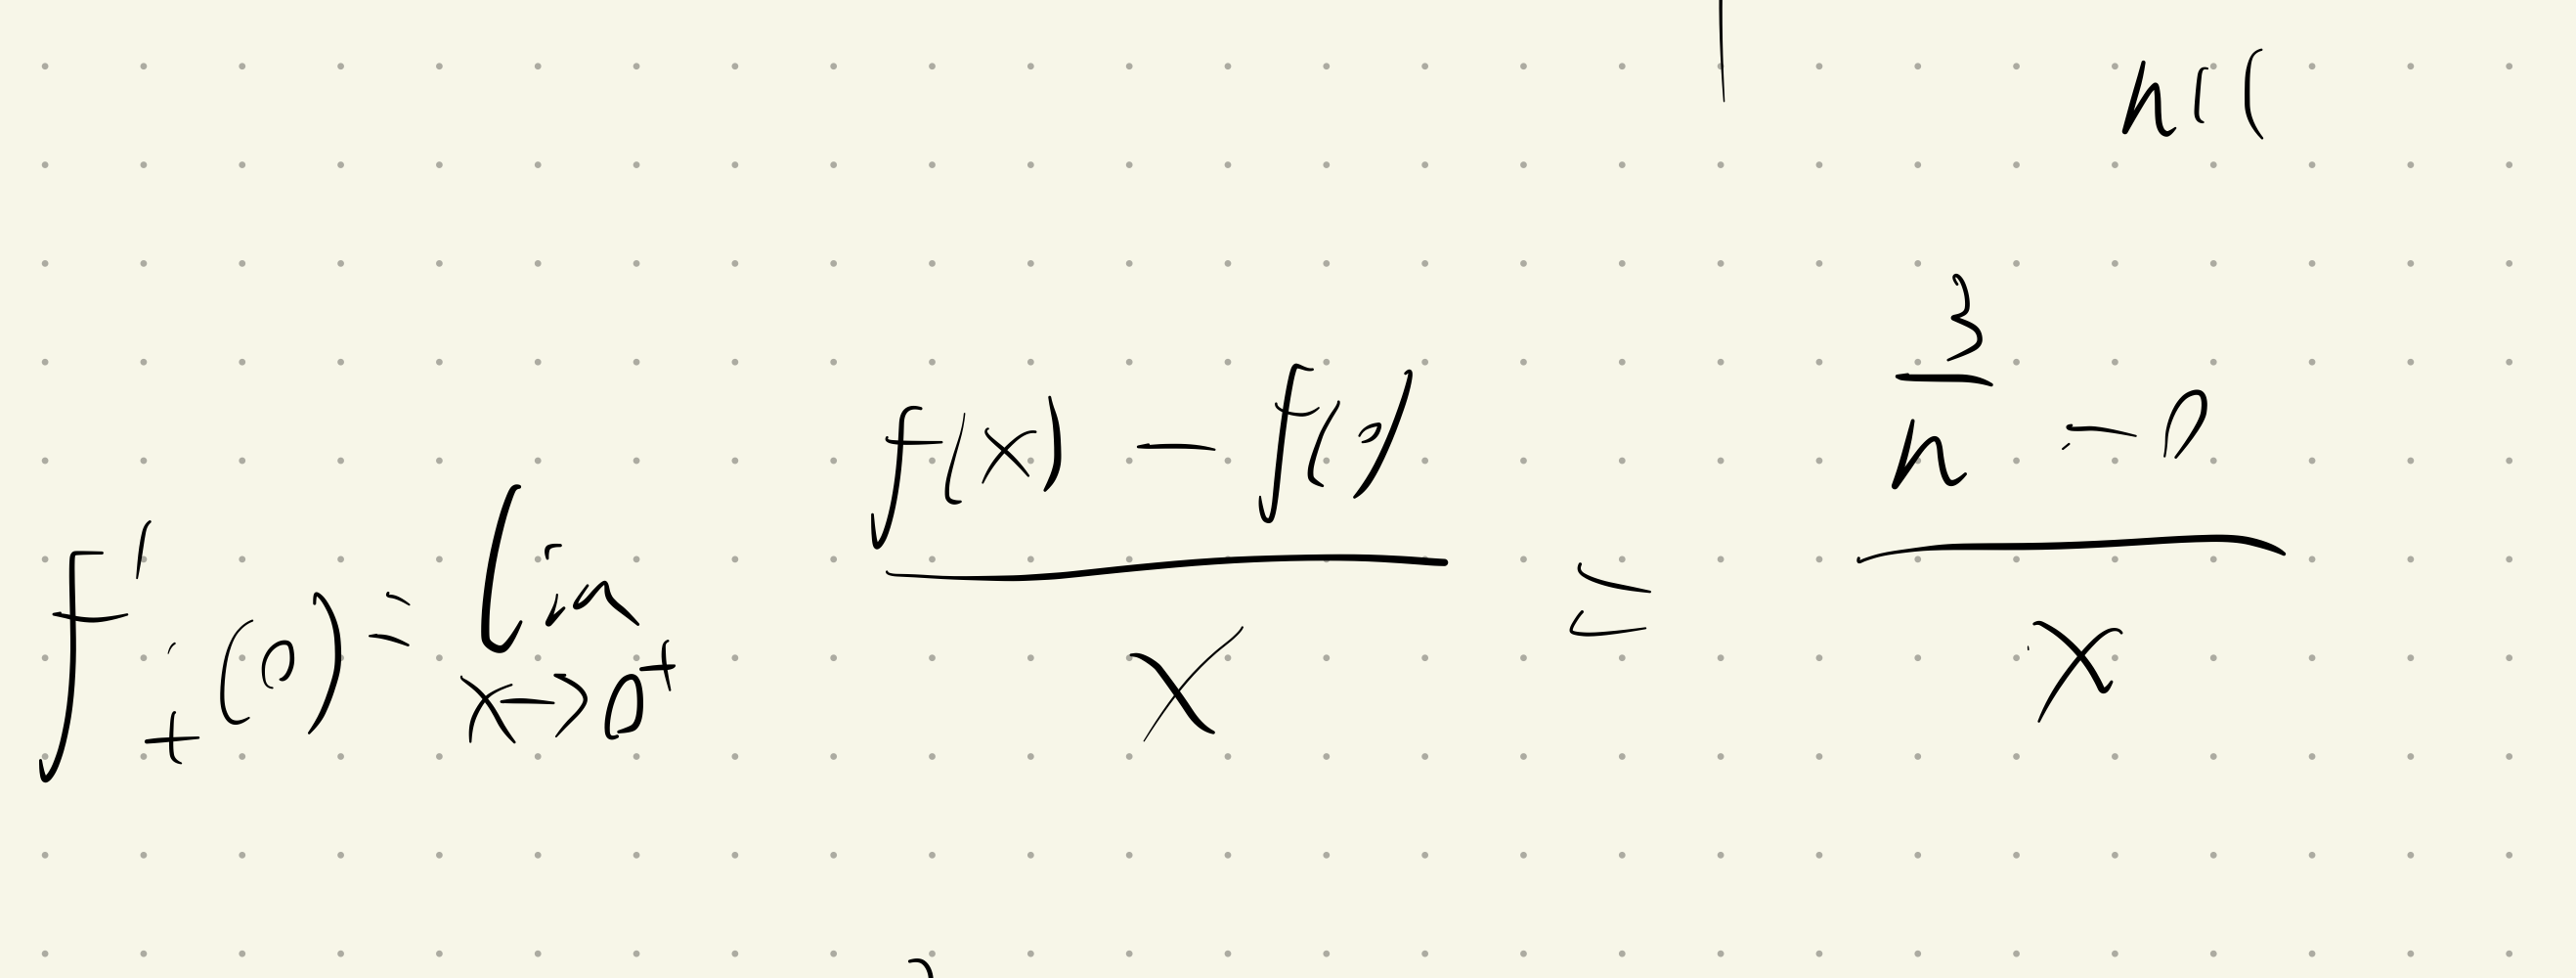 f'₊(0) = lim x→0⁺ (f(x) - f(0))/x = (3/n - 0)/x